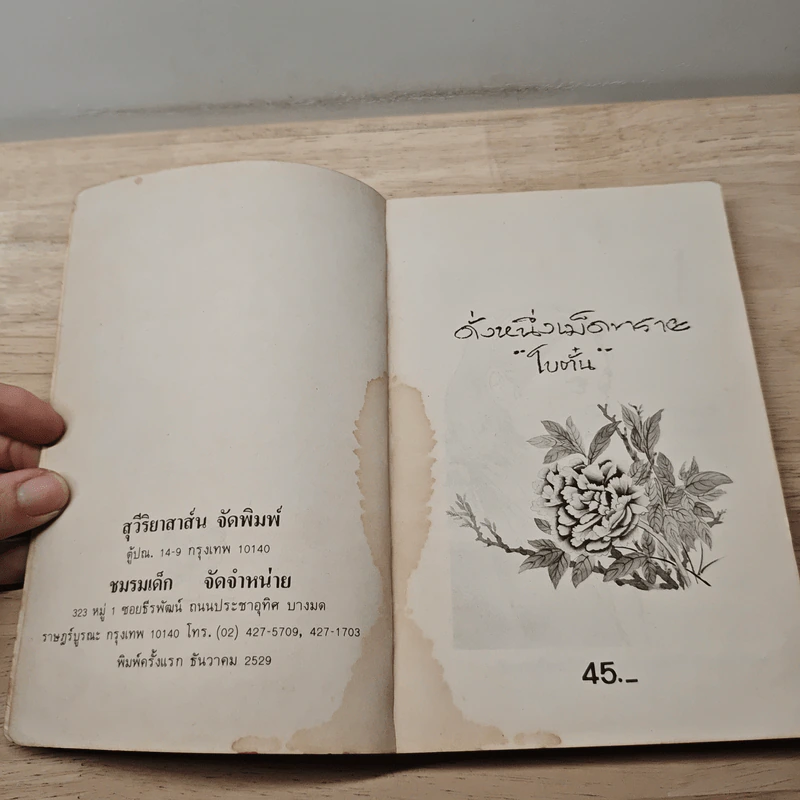 สุวีริยาสาส์น จัดพิมพ์
ตู้ปณ. 14-9 กรุงเทพ 10140
ชมรมเด็ก จัดจำหน่าย
323 หมู่ 1 ซอยธีรพัฒน์ ถนนประชาอุทิศ บางมด
ราษฎร์บูรณะ กรุงเทพ 10140 โทร. (02) 427-5709, 427-1703
พิมพ์ครั้งแรก ธันวาคม 2529
ดั่งหนึ่งเม็ดทราย
"โบตั๋น"
45.–